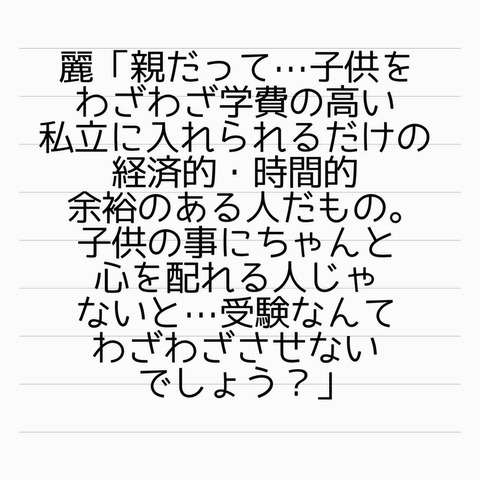 麗「親だって…子供を
わざわざ学費の高い
私立に入れられるだけの
経済的・時間的
余裕のある人だもの。
子供の事にちゃんと
心を配れる人じゃ
ないと…受験なんて
わざわざさせない
でしょう？」